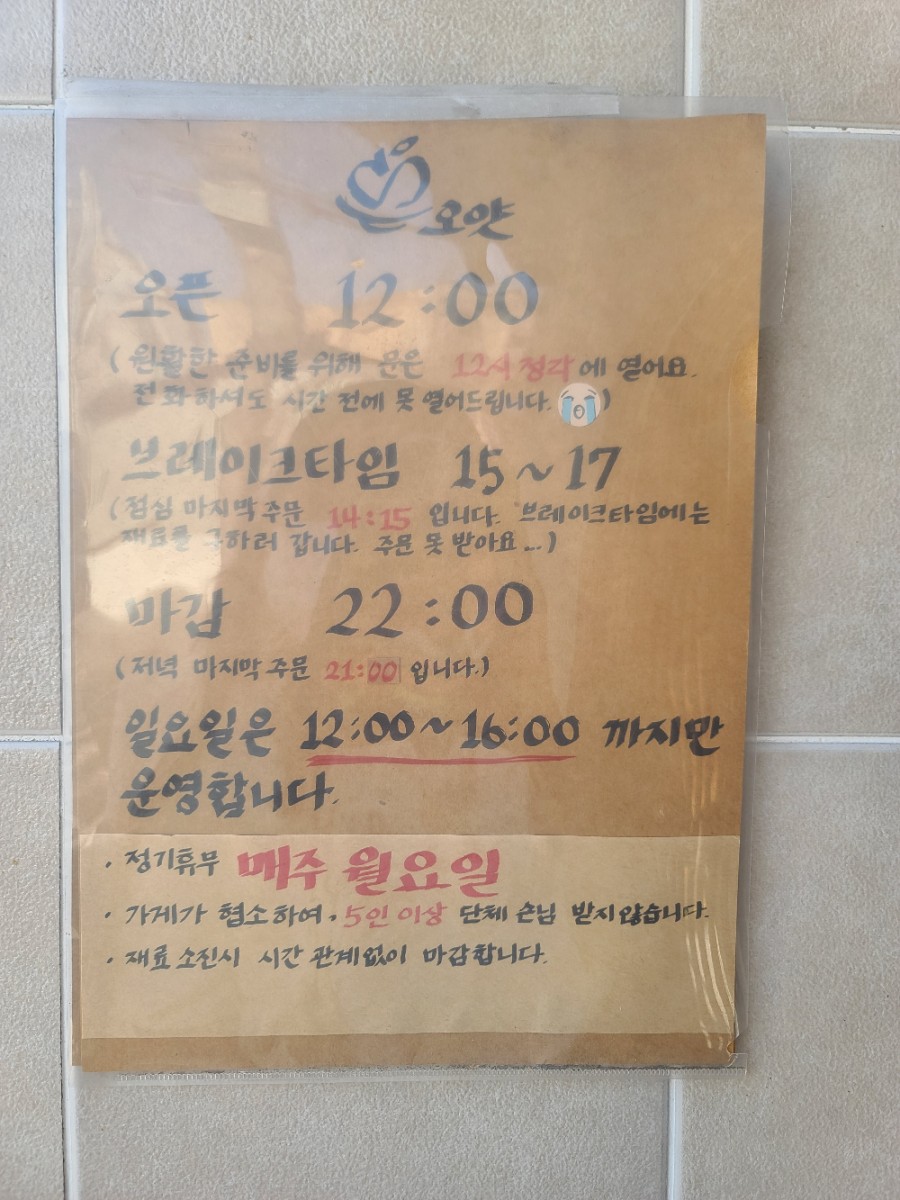 오얏
오픈 12:00
( 원활한 준비를 위해 문은 12시 정각에 열어요.
전화하셔도 시간 전에 못 열어드립니다. )
브레이크타임 15~17
(점심 마지막 주문 14:15 입니다. 브레이크타임에는
재료를 구하러 갑니다. 주문 못 받아요...)
마감 22:00
(저녁 마지막 주문 21:00 입니다.)
일요일은 12:00~16:00 까지만
운영합니다.
· 정기휴무 매주 월요일
· 가게가 협소하여, 5인 이상 단체 손님 받지 않습니다.
· 재료 소진시 시간 관계없이 마감합니다.